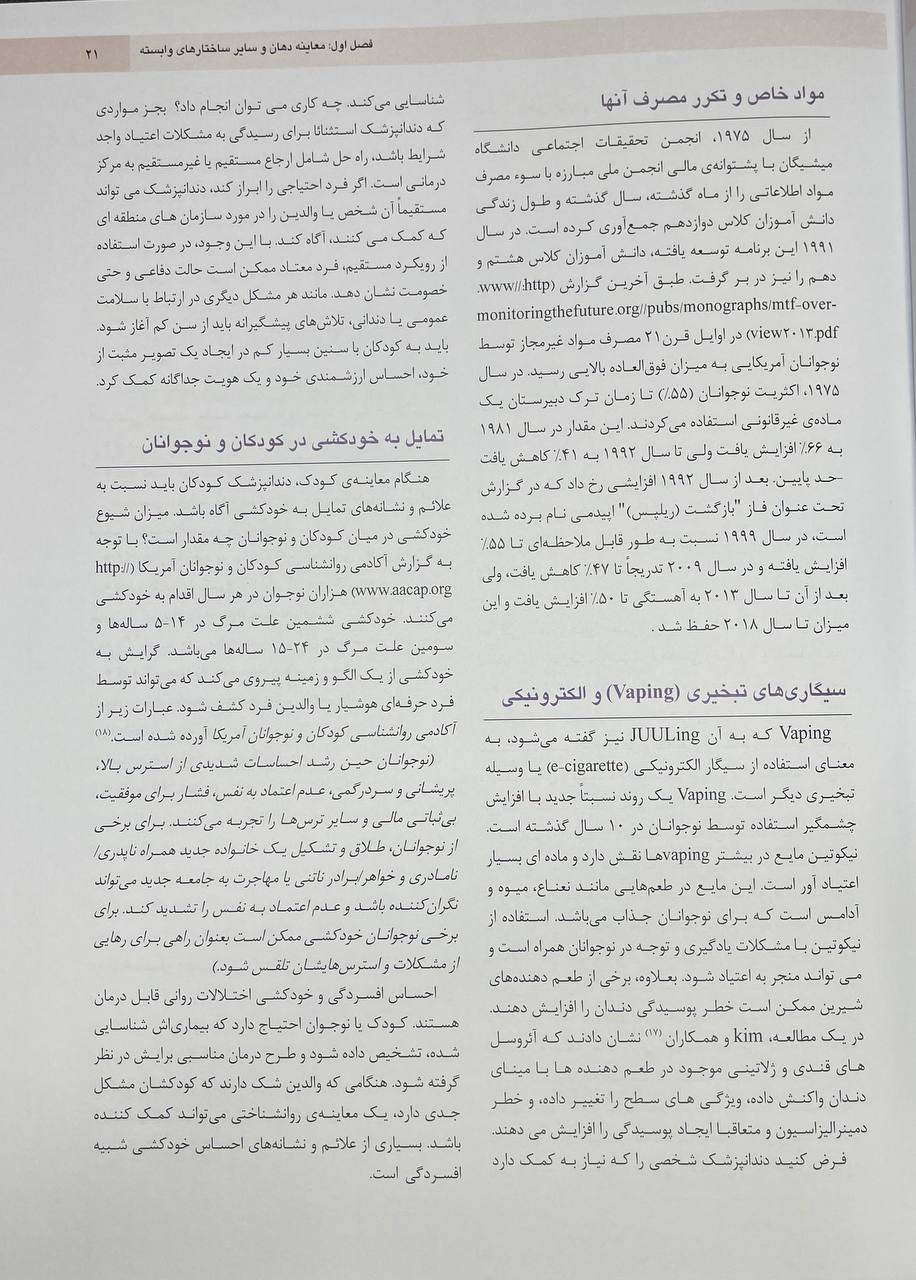 فصل اول: معاینه دهان و سایر ساختارهای وابسته ۲۱
مواد خاص و تکرر مصرف آنها
از سال ۱۹۷۵، انجمن تحقیقات اجتماعی دانشگاه
میشیگان با پشتوانه‌ی مالی انجمن ملی مبارزه با سوء مصرف
مواد اطلاعاتی را از ماه گذشته، سال گذشته و طول زندگی
دانش آموزان کلاس دوازدهم جمع‌آوری کرده است. در سال
۱۹۹۱ این برنامه توسعه یافته، دانش آموزان کلاس هشتم و
دهم را نیز در بر گرفت. طبق آخرین گزارش (http://www.
monitoringthefuture.org//pubs/monographs/mtf-over-
view۲۰۱۳.pdf) در اوایل قرن ۲۱ مصرف مواد غیرمجاز توسط
نوجوانان آمریکایی به میزان فوق‌العاده بالایی رسید. در سال
۱۹۷۵، اکثریت نوجوانان (۵۵٪) تا زمان ترک دبیرستان یک
ماده‌ی غیرقانونی استفاده می‌کردند. این مقدار در سال ۱۹۸۱
به ۶۶٪ افزایش یافت ولی تا سال ۱۹۹۲ به ۴۱٪ کاهش یافت
-حد پایین. بعد از سال ۱۹۹۲ افزایشی رخ داد که در گزارش
تحت عنوان فاز "بازگشت (ریلپس)" اپیدمی نام برده شده
است، در سال ۱۹۹۹ نسبت به طور قابل ملاحظه‌ای تا ۵۵٪
افزایش یافته و در سال ۲۰۰۹ تدریجاً تا ۴۷٪ کاهش یافت، ولی
بعد از آن تا سال ۲۰۱۳ به آهستگی تا ۵۰٪ افزایش یافت و این
میزان تا سال ۲۰۱۸ حفظ شد .
سیگاری‌های تبخیری (Vaping) و الکترونیکی
Vaping که به آن JUULing نیز گفته می‌شود، به
معنای استفاده از سیگار الکترونیکی (e-cigarette) یا وسیله
تبخیری دیگر است. Vaping یک روند نسبتاً جدید با افزایش
چشمگیر استفاده توسط نوجوانان در ۱۰ سال گذشته است.
نیکوتین مایع در بیشتر vapingها نقش دارد و ماده ای بسیار
اعتیاد آور است. این مایع در طعم‌هایی مانند نعناع، میوه و
آدامس است که برای نوجوانان جذاب می‌باشد. استفاده از
نیکوتین با مشکلات یادگیری و توجه در نوجوانان همراه است و
می تواند منجر به اعتیاد شود. بعلاوه، برخی از طعم دهنده‌های
شیرین ممکن است خطر پوسیدگی دندان را افزایش دهند.
در یک مطالعه، kim و همکاران (۱۷) نشان دادند که آئروسل
های قندی و ژلاتینی موجود در طعم دهنده ها با مینای
دندان واکنش داده، ویژگی های سطح را تغییر داده، و خطر
دمینرالیزاسیون و متعاقبا ایجاد پوسیدگی را افزایش می دهند.
فرض کنید دندانپزشک شخصی را که نیاز به کمک دارد
شناسایی می‌کند. چه کاری می توان انجام داد؟ بجز مواردی
که دندانپزشک استثنائا برای رسیدگی به مشکلات اعتیاد واجد
شرایط باشد، راه حل شامل ارجاع مستقیم یا غیرمستقیم به مرکز
درمانی است. اگر فرد احتیاجی را ابراز کند، دندانپزشک می تواند
مستقیماً آن شخص یا والدین را در مورد سازمان های منطقه ای
که کمک می کنند، آگاه کند. با این وجود، در صورت استفاده
از رویکرد مستقیم، فرد معتاد ممکن است حالت دفاعی و حتی
خصومت نشان دهد. مانند هر مشکل دیگری در ارتباط با سلامت
عمومی یا دندانی، تلاش‌های پیشگیرانه باید از سن کم آغاز شود.
باید به کودکان با سنین بسیار کم در ایجاد یک تصویر مثبت از
خود، احساس ارزشمندی خود و یک هویت جداگانه کمک کرد.
تمایل به خودکشی در کودکان و نوجوانان
هنگام معاینه‌ی کودک، دندانپزشک کودکان باید نسبت به
علائم و نشانه‌های تمایل به خودکشی آگاه باشد. میزان شیوع
خودکشی در میان کودکان و نوجوانان چه مقدار است؟ با توجه
به گزارش آکادمی روانشناسی کودکان و نوجوانان آمریکا (http://
www.aacap.org) هزاران نوجوان در هر سال اقدام به خودکشی
می‌کنند. خودکشی ششمین علت مرگ در ۱۴-۵ ساله‌ها و
سومین علت مرگ در ۲۴-۱۵ ساله‌ها می‌باشد. گرایش به
خودکشی از یک الگو و زمینه پیروی می‌کند که می‌تواند توسط
فرد حرفه‌ای هوشیار یا والدین فرد کشف شود. عبارات زیر از
آکادمی روانشناسی کودکان و نوجوانان آمریکا آورده شده است.(۱۸)
(نوجوانان حین رشد احساسات شدیدی از استرس بالا،
پریشانی و سردرگمی، عدم اعتماد به نفس، فشار برای موفقیت،
بی‌ثباتی مالی و سایر ترس‌ها را تجربه می‌کنند. برای برخی
از نوجوانان، طلاق و تشکیل یک خانواده جدید همراه ناپدری/
نامادری و خواهر/برادر ناتنی یا مهاجرت به جامعه جدید می‌تواند
نگران‌کننده باشد و عدم اعتماد به نفس را تشدید کند. برای
برخی نوجوانان خودکشی ممکن است بعنوان راهی برای رهایی
از مشکلات و استرس‌هایشان تلقس شود.)
احساس افسردگی و خودکشی اختلالات روانی قابل درمان
هستند. کودک یا نوجوان احتیاج دارد که بیماری‌اش شناسایی
شده، تشخیص داده شود و طرح درمان مناسبی برایش در نظر
گرفته شود. هنگامی که والدین شک دارند که کودکشان مشکل
جدی دارد، یک معاینه‌ی روانشناختی می‌تواند کمک کننده
باشد. بسیاری از علائم و نشانه‌های احساس خودکشی شبیه
افسردگی است.